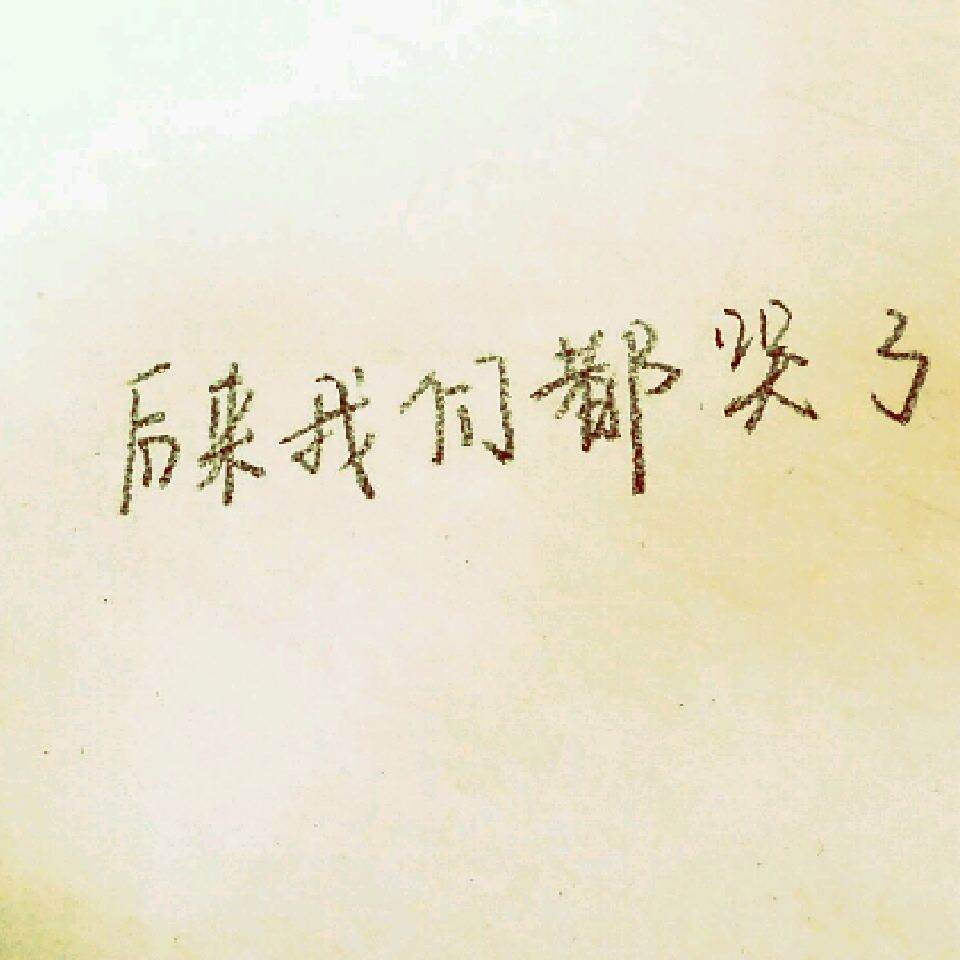 后来我们都哭了